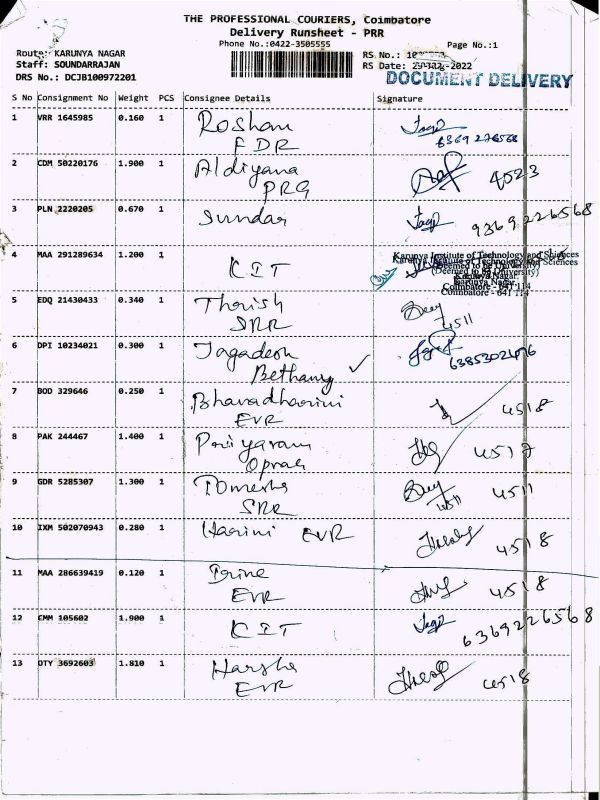 THE PROFESSIONAL COURIERS, Coimbatore
Delivery Runsheet - PRR
Phone No.:0422-3505555
Page No.:1
Route: KARUNYA NAGAR
Staff: SOUNDARRAJAN
DRS No.: DCJB100972201
RS No.:
RS Date: 2022
DOCUMENT DELIVERY
S No Consignment No Weight PCS Consignee Details Signature
1 VRR 1645985 0.160 1 Roshan
FDR
6369 226568
2 CDM 50220176 1.900 1 Aldiyana 4523
PRG
3 PLN 2220205 0.670 1 Sundar 9369226568
4 MAA 291289634 1.200 1 KIT
Karunya Institute of Technology and Sciences
Karunya Institute of Technology and Sciences
(Deemed to be University)
(Deemed to be University)
Karunya Nagar,
Karunya Nagar,
Coimbatore - 641 114
Coimbatore - 641 114
5 EDQ 21430433 0.340 1 Tharish
SRR 4511
6 DPI 10234021 0.300 1 Jagadesh
Bethany
7 BOD 329646 0.250 1 Bharadharini 4518
EVR
8 PAK 244467 1.400 1 4517
9 GDR 5285307 1.300 1 4511
SRR 4511
10 IXM 502070943 0.280 1 Harini EVR 4518
11 MAA 286639419 0.120 1 4518
EVR
12 CMM 105602 1.900 1 KIT 6369226568
13 OTY 3692603 1.810 1 Harsha 4518
EVR